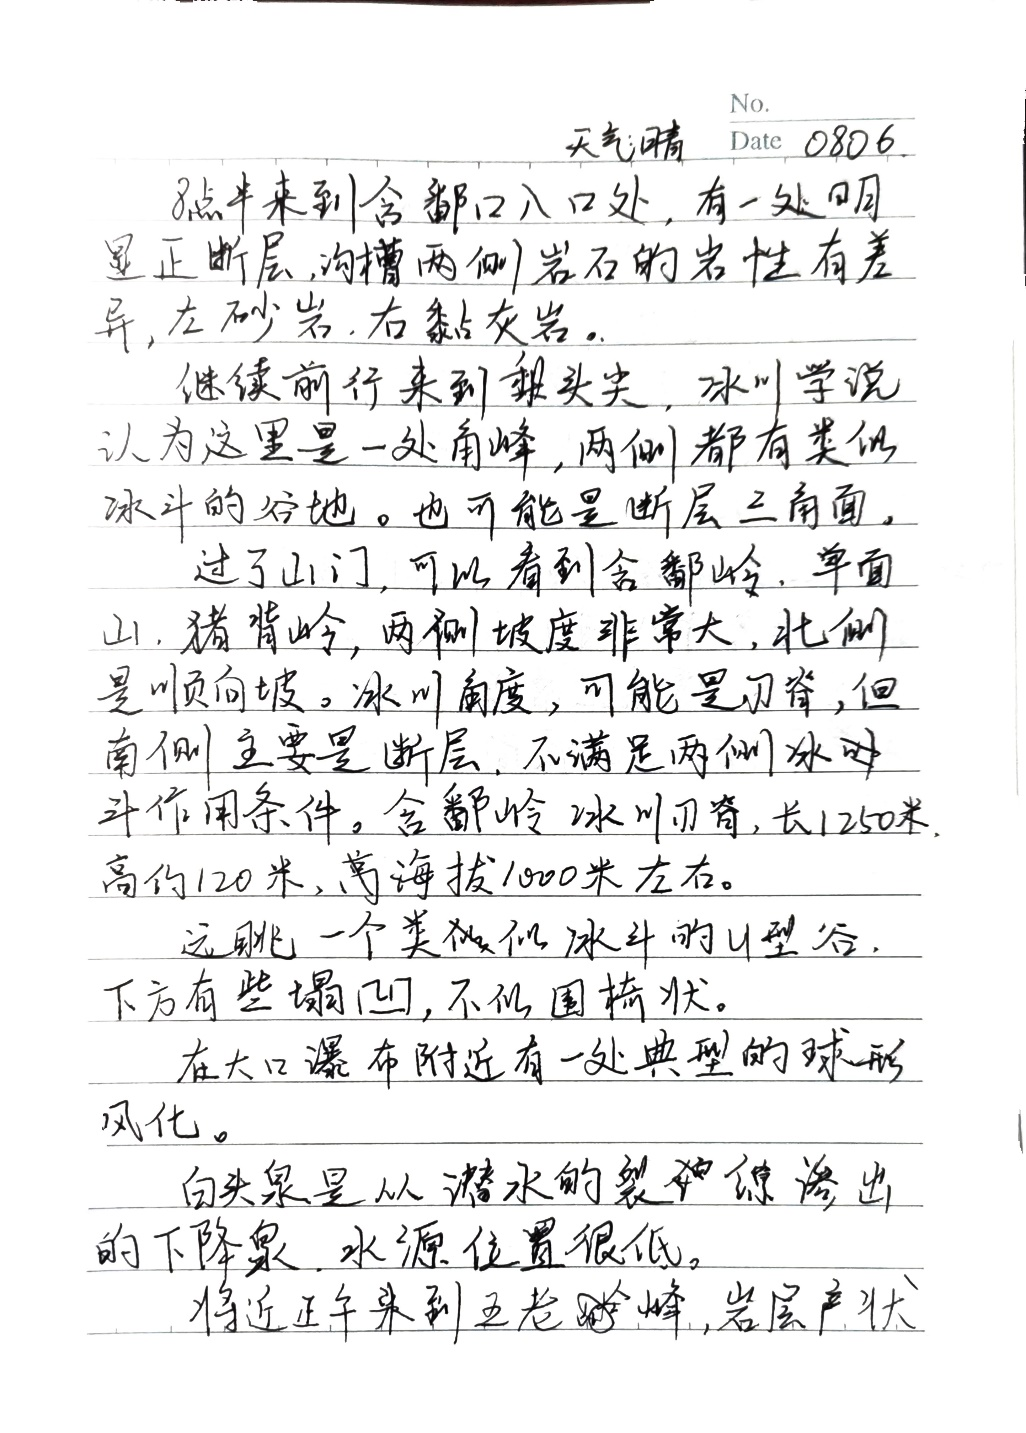 No.
天气:晴 Date 0806.
8点半来到含鄱口入口处，有一处明
显正断层，沟槽两侧岩石的岩性有差
异，左砂岩．右黏灰岩。
继续前行来到犁头尖，冰川学说
认为这里是一处角峰，两侧都有类似
冰斗的谷地。也可能是断层三角面。
过了山门，可以看到含鄱岭．单面
山．猪背岭，两侧坡度非常大，北侧
是顺向坡。冰川角度，可能是刃脊，但
南侧主要是断层．不满足两侧冰
斗作用条件。含鄱岭冰川刃脊，长1250米，
高约120米，海拔1000米左右。
远眺一个类似冰斗的U型谷．
下方有些塌凹，不似围椅状。
在大口瀑布附近有一处典型的球形
风化。
白头泉是从潜水的裂隙渗出
的下降泉．水源位置很低。
将近正午来到五老峰，岩层产状